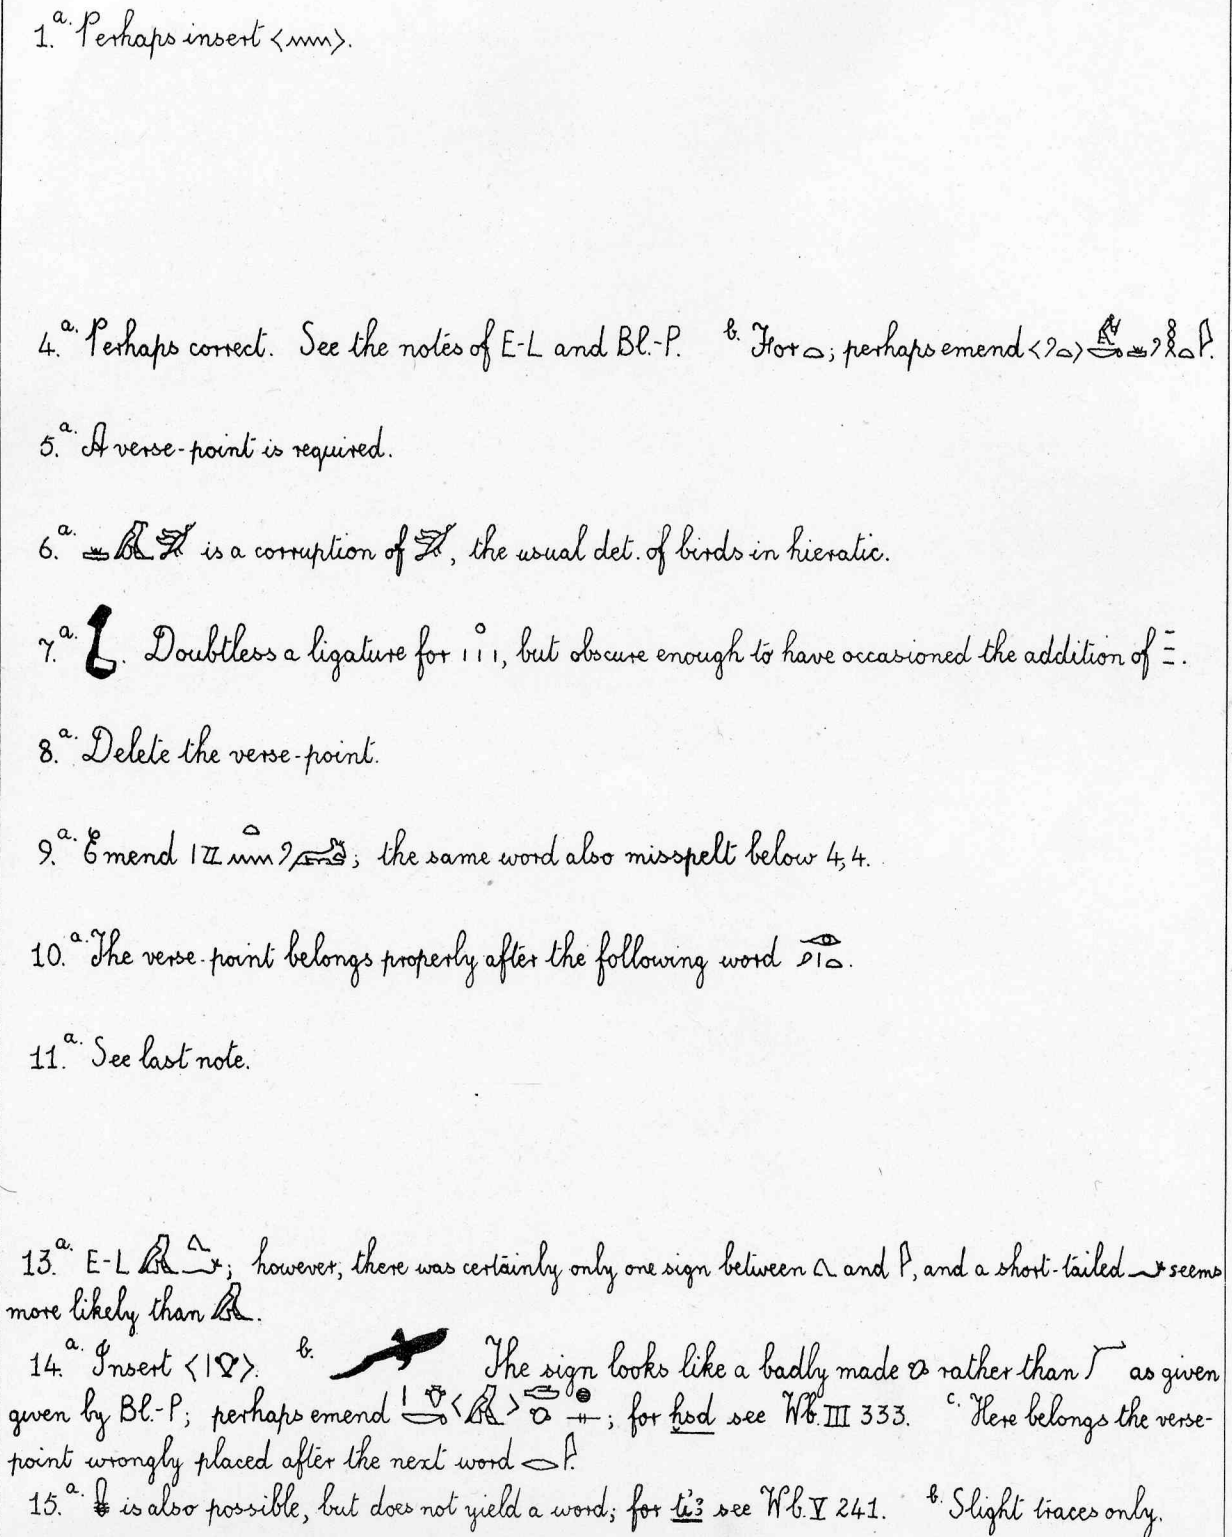 1.ᵃ· Perhaps insert < 𓈖 >.
4.ᵃ· Perhaps correct. See the notes of E-L and Bl.-P. ᵇ· For 𓏏; perhaps emend
5.ᵃ· A verse-point is required.
6.ᵃ· is a corruption of , the usual det. of birds in hieratic.
7.ᵃ· . Doubtless a ligature for , but obscure enough to have occasioned the addition of .
8.ᵃ· Delete the verse-point.
9.ᵃ· Emend ; the same word also misspelt below 4,4.
10.ᵃ· The verse-point belongs properly after the following word .
11.ᵃ· See last note.
13.ᵃ· E-L ; however, there was certainly only one sign between 𓂻 and , and a short-tailed 𓆑 seems
more likely than .
14.ᵃ· Insert < >. ᵇ· The sign looks like a badly made rather than as given
given by Bl.-P; perhaps emend ; for ẖsd see Wb. III 333. ᶜ· Here belongs the verse-
point wrongly placed after the next word .
15.ᵃ· is also possible, but does not yield a word; for tiꜣ see Wb. V 241. ᵇ· Slight traces only.